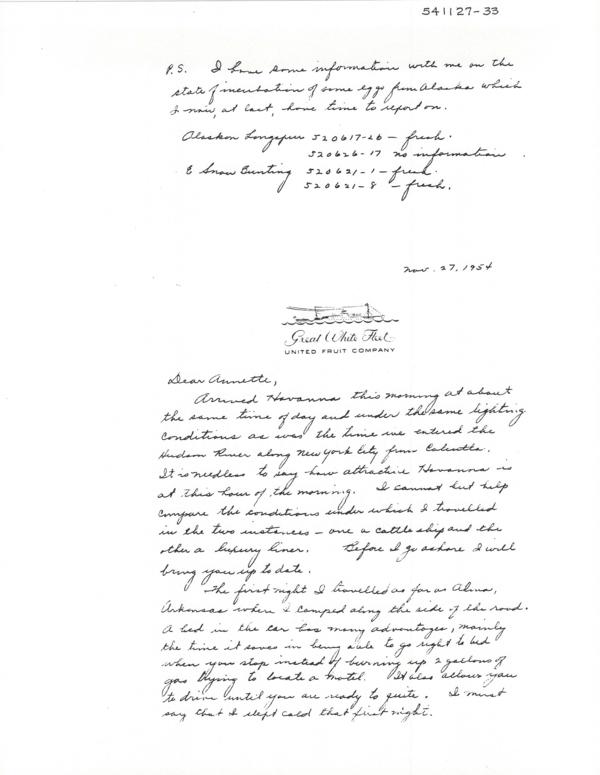 541127-33
P.S. I have some information with me on the
state of incubation of some eggs from Alaska which
I now, at last, have time to report on.
Alaskan Longspur 520617-26 - fresh.
520626-17 no information.
E Snow Bunting 520621-1 - fresh.
520621-8 - fresh.
Nov. 27, 1954
Great White Fleet
UNITED FRUIT COMPANY
Dear Annette,
Arrived Havanna this morning at about
the same time of day and under the same lighting
conditions as was the time we entered the
Hudson River along New York City from Calcutta.
It is needless to say how attractive Havanna is
at this hour of the morning. I cannot but help
compare the conditions under which I travelled
in the two instances - one a cattle ship and the
other a luxury liner. Before I go ashore I will
bring you up to date.
The first night I travelled as far as Alma,
Arkansas where I camped along the side of the road.
A bed in the car has many advantages, mainly
the time it saves in being able to go right to bed
when you stop instead of burning up 2 gallons of
gas trying to locate a motel. It also allows you
to drive until you are ready to quite. I must
say that I slept cold that first night.